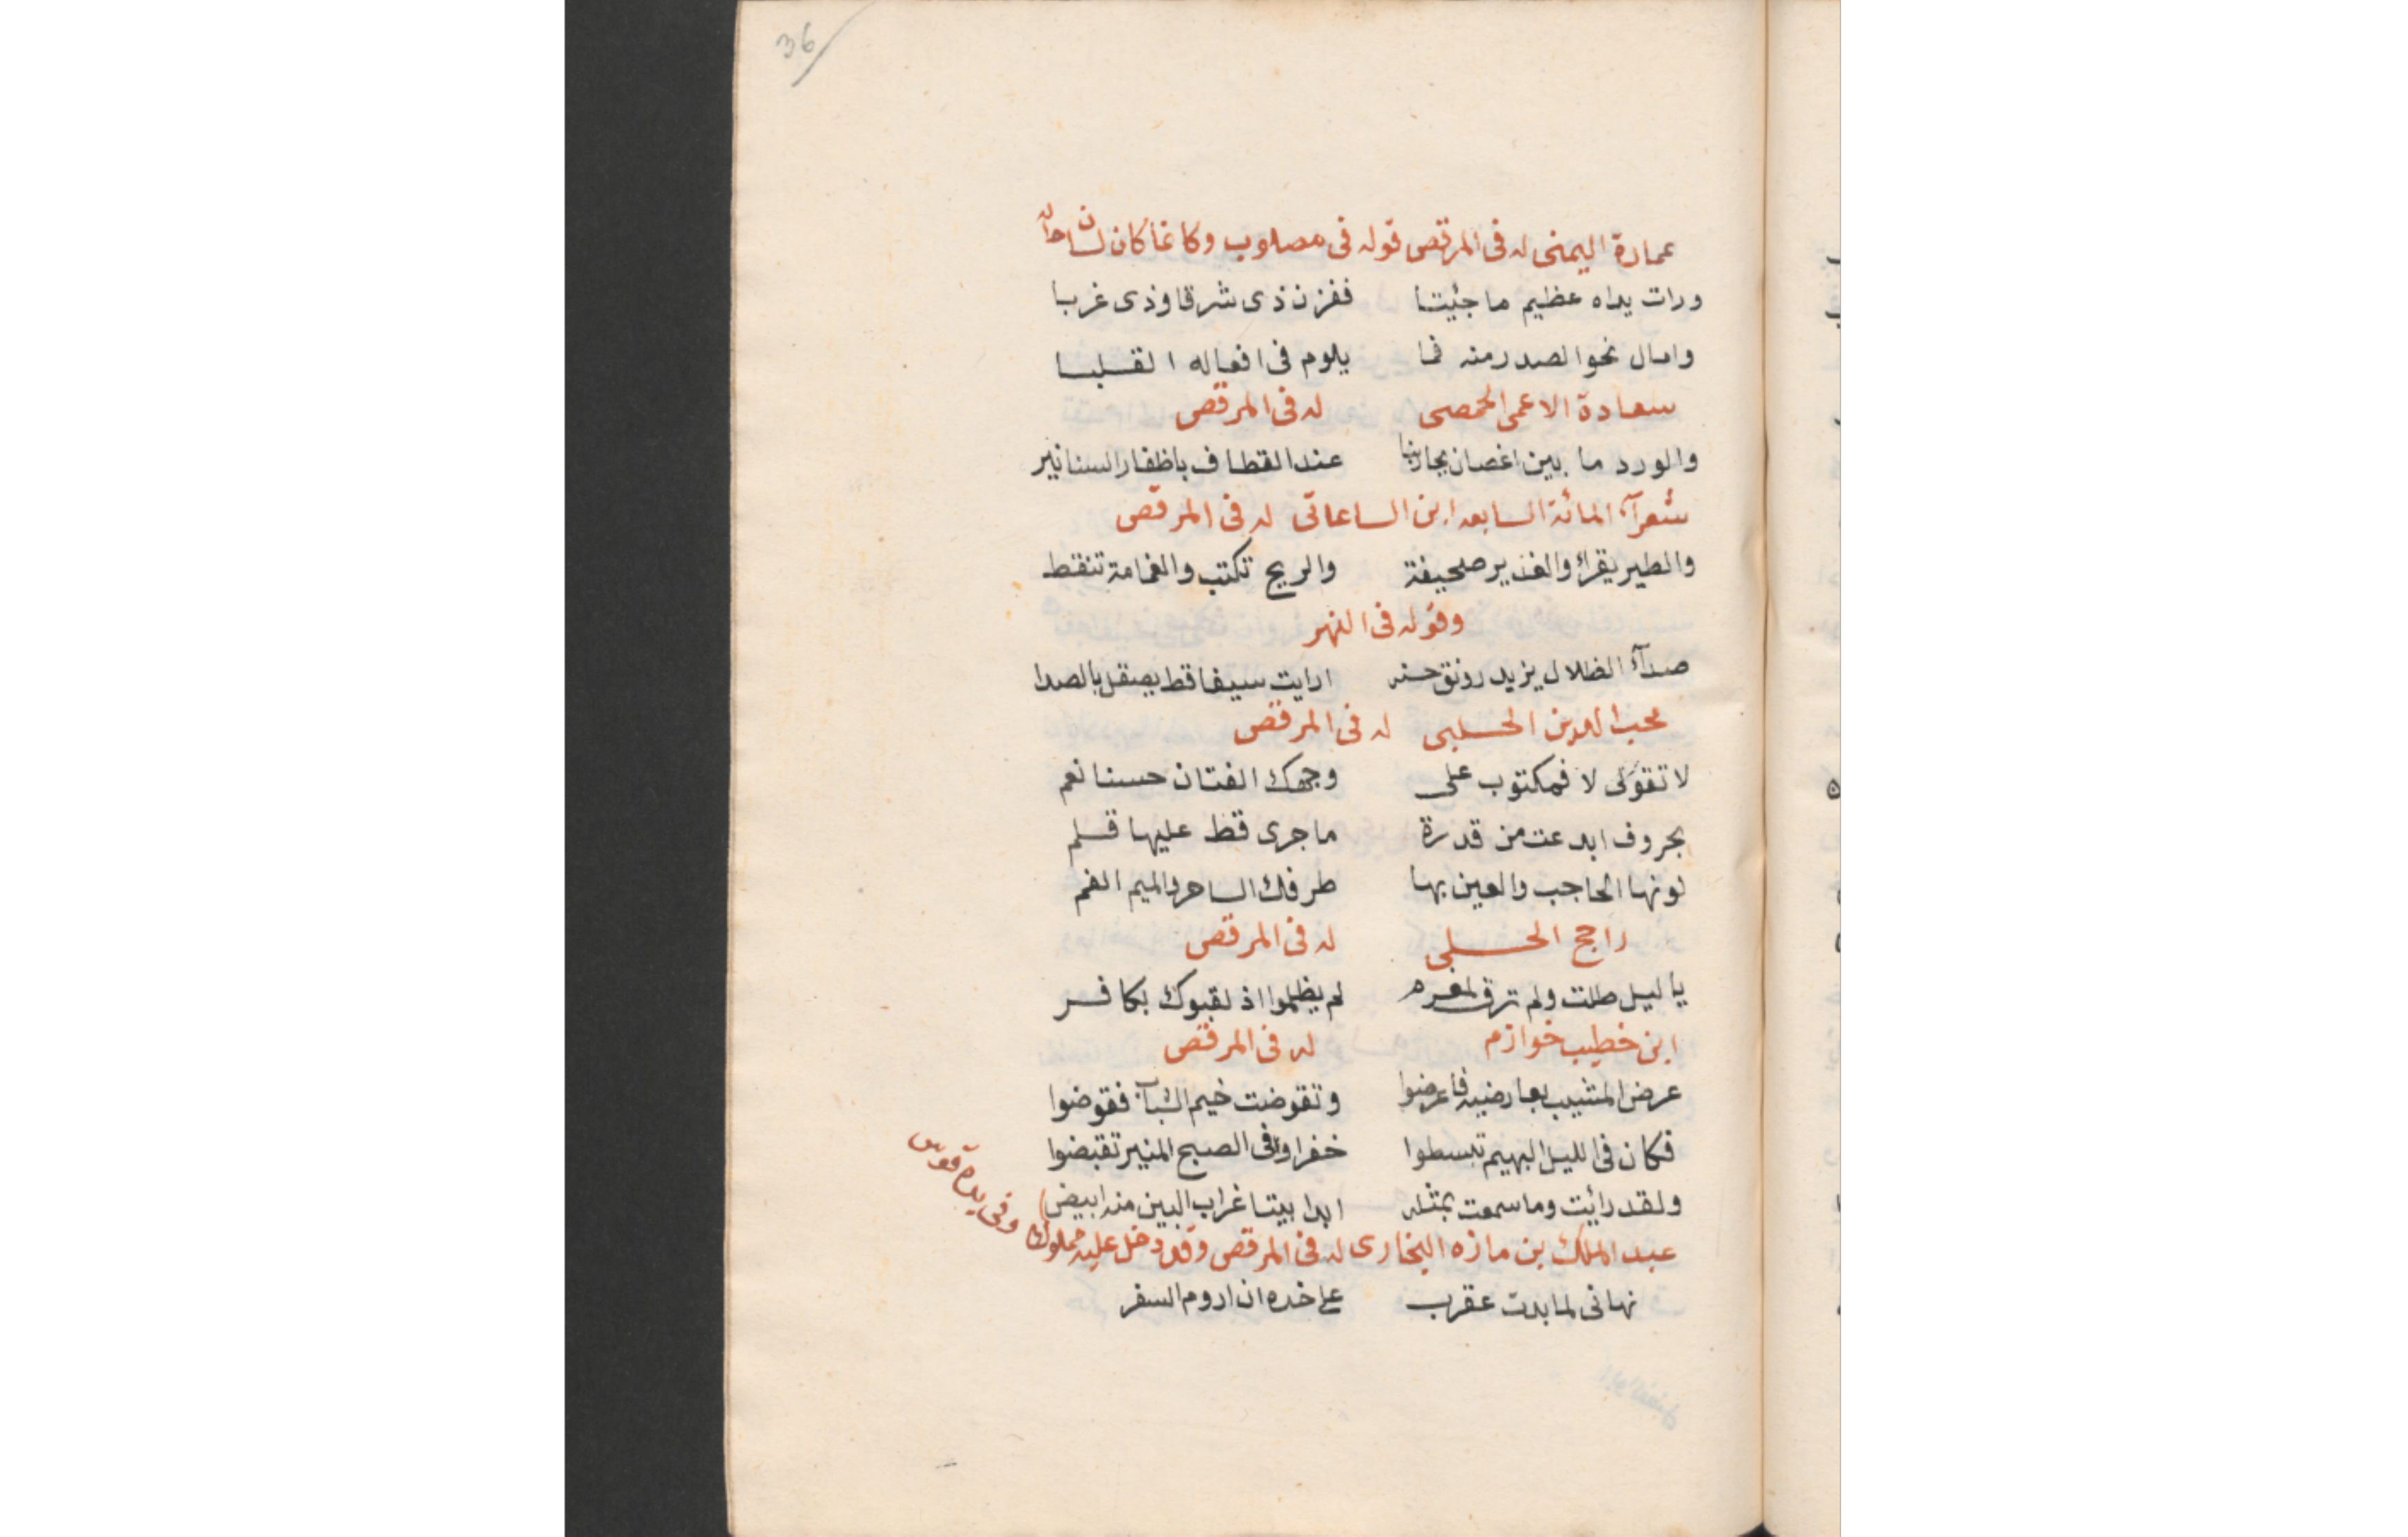 36
عمارة اليمنى له فى المرقص قوله فى مصلوب وكانما كان لسان حاله
ورات يداه عظيم ما جئيتا ففزن ذى شرقا وذى غربا
وامال نحو الصدر منه فما يلوم فى افعاله القلبا
سعادة الاعمى الحمصى له فى المرقص
والورد ما بين اغصان عند القطاف باظفار السنانير
شعرآء المائة السابعه ابن الساعاتى له فى المرقص
والطير يقراء والغدير صحيفة والريح تكتب والغمامة تنقط
وقوله فى النهر
صدآء الظلال يزيد رونق حسنه ارايت سيفا قط يصقل بالصدا
محب الدين الحلبى له فى المرقص
لا تقولى لا فمكتوب على وجهك الفتان حسنا نعم
بحروف ابدعت من قدرة ما جرى قط عليها قلم
نونها الحاجب والعين بها طرفك الساحر والميم الفم
راجح الحلبى له فى المرقص
يا ليل طلت ولم ترق لمغرم لم يظلموا اذ لقبوك بكافر
ابن خطيب خوارزم له فى المرقص
عرض المشيب بعارضيه فاعرضوا وتقوضت خيم الشباب فقوضوا
فكان فى الليل البهيم تبسطوا خفرا وفى الصبح المنير تقبضوا
ولقد رائيت وما سمعت بمثله ابدا بيتا غراب البين منه ابيض
عبد الملك بن مازه البخارى له فى المرقص وقد دخل عليه مملوك وفى يده قوس
نهانى لما بدت عقرب على خده ان اروم السفر